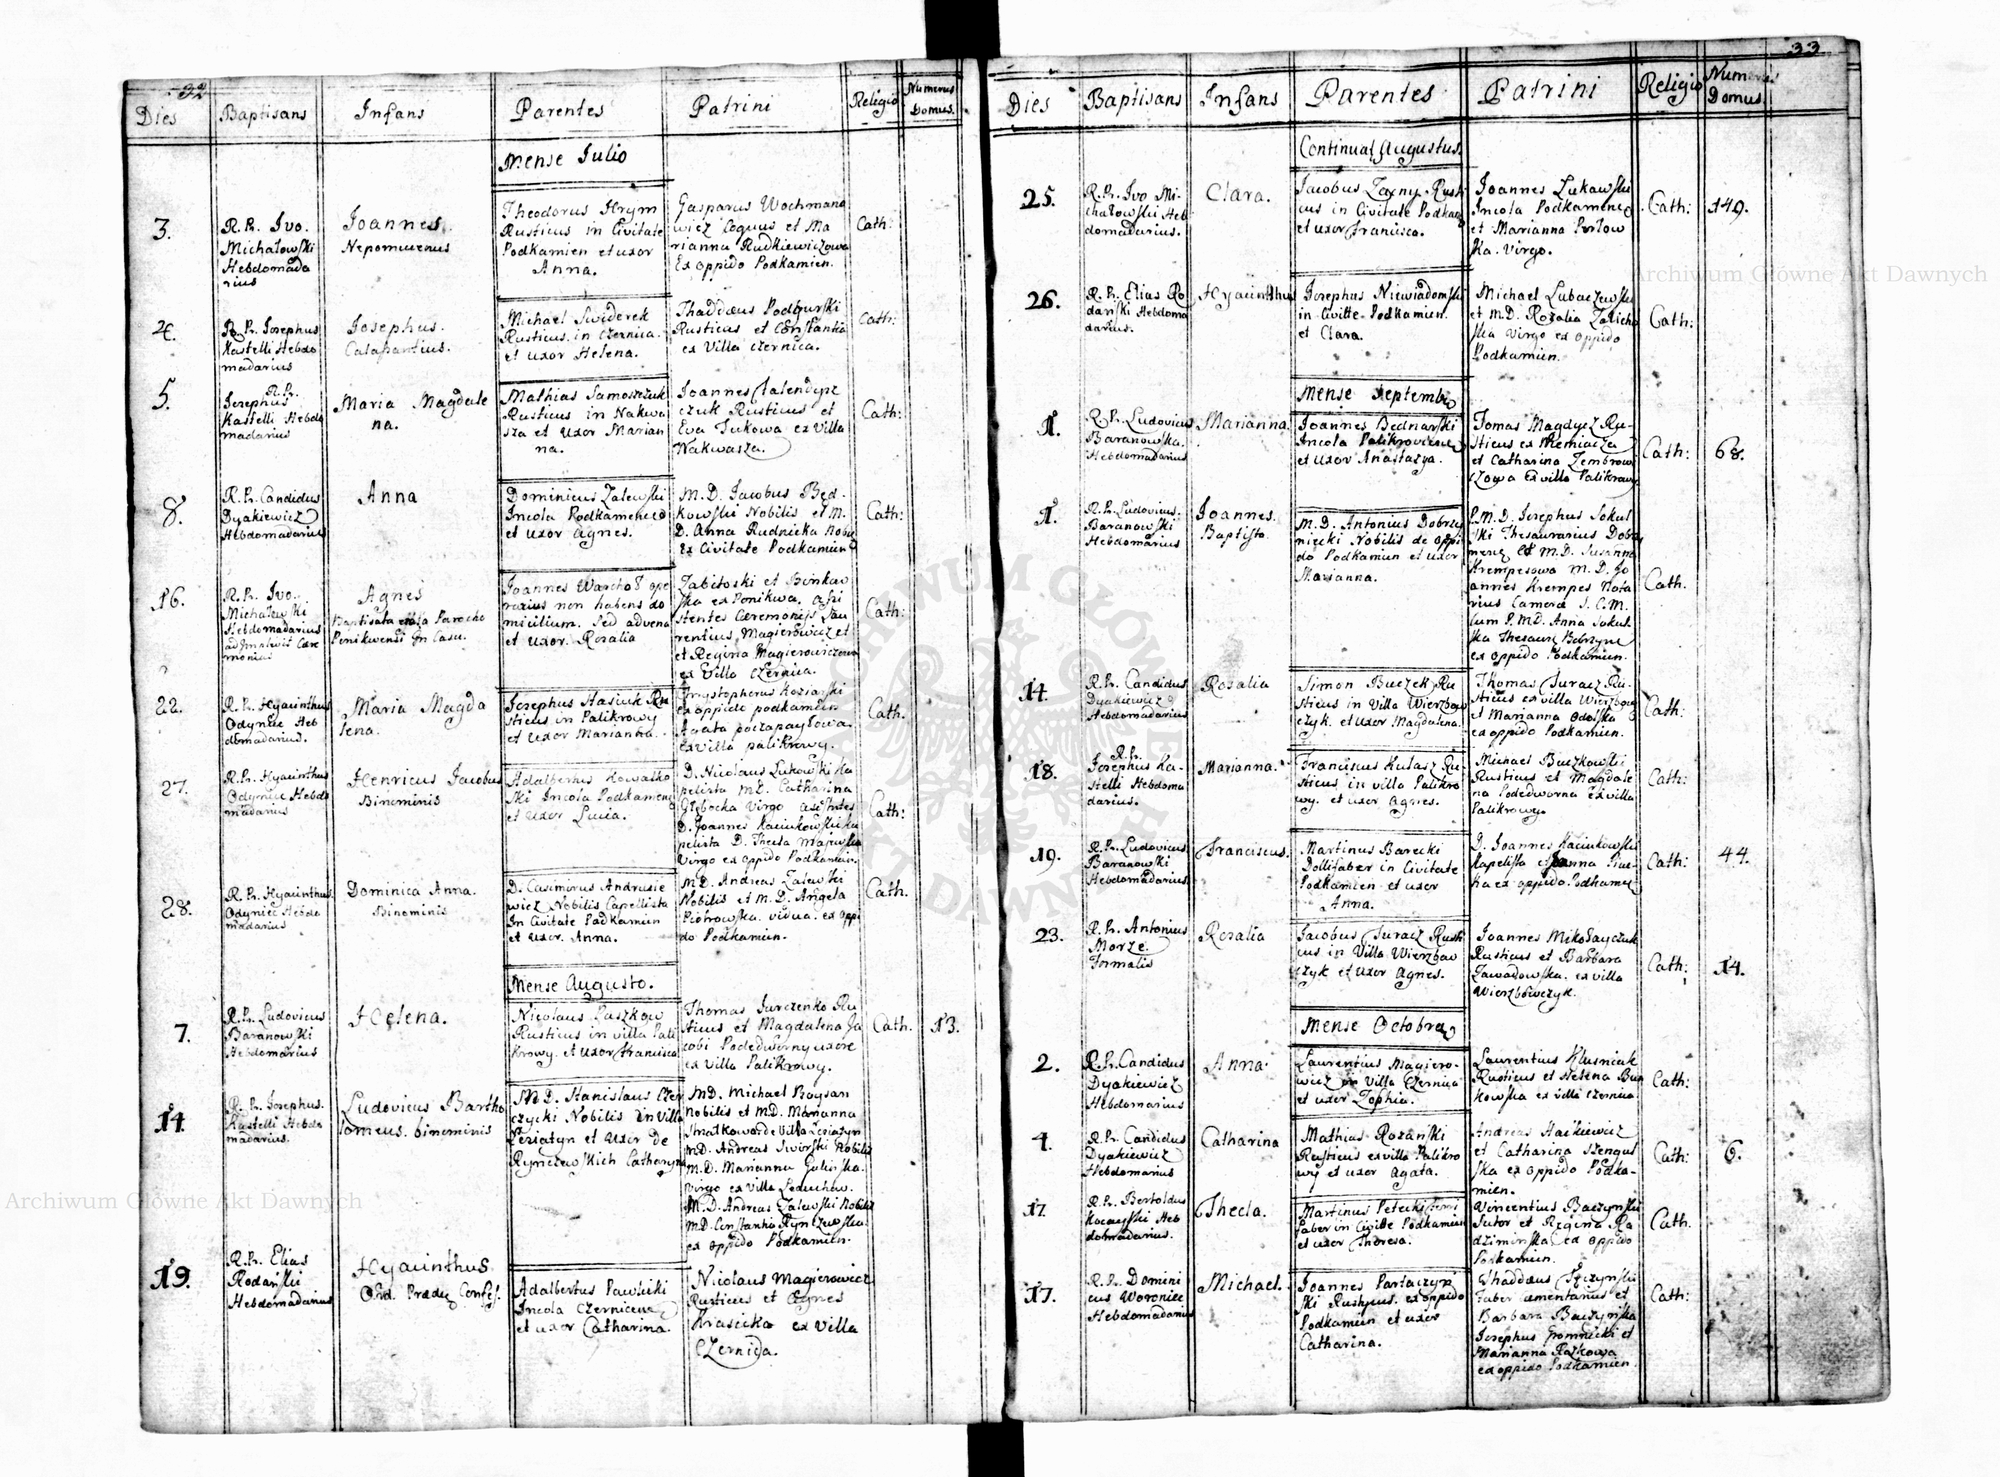 32
Dies
Baptisans
Infans
Parentes
Patrini
Religio
Numerus
Domus.
Mense Julio
3.
R. P. Ivo.
Michałowski
Hebdomada
rius
Joannes
Nepomucenus
Theodorus Hrym
Rusticus in Civitate
Podkamien et uxor
Anna.
Gasparus Wochmano
wicz Coquus et Ma
rianna Rudkiewiczowa
Ex oppido Podkamien.
Cath:
4.
R. P. Josephus
Kastelli Hebdo
madarius
Josephus.
Calasantius.
Michael Swiderek
Rusticus in Czernica.
et uxor Helena.
Thaddæus Podburski
Rusticus et Constantia
ex Villa Czernica.
Cath:
5.
R. P.
Josephus
Kastelli Hebdo
madarius
Maria Magdale
na.
Mathias Samoszczuk
Rusticus in Nakwa
sza et uxor Marian
na.
Joannes
czuk Rusticus et
Eva Jukowa ex Villa
Nakwasza.
Cath:
8.
R. P. Candidus
Dyakiewicz
Hebdomadarius
Anna
Dominicus Zalewski
Incola Podkamenec
et uxor Agnes.
M. D. Jacobus Będ-
kowski Nobilis et M.
D. Anna Rudnicka Nobi
Ex Civitate Podkamien
Cath:
16.
R. P. Ivo.
Michałowski
Hebdomadarius
Agnes
Baptisata Parocho
Ponikwensi In Casu.
Joannes Warchoł ope
rarius non habens do
micilium. Sed advena
et uxor. Rosalia
Zabitoski et Binkow
ska ex Ponikwa. Assi
stentes Cæremonijs Lau
rentius Magierowicz et
et Regina Magierowiczowa
Ex Villa Czernica.
Cath:
22.
R. P. Hyacinthus
Odyniec Heb
domadarius.
Maria Magda
lena.
Josephus Hasiuk Ru
sticus in Palikrowy
et uxor Marianna.
Chrystopherus Koziarski
ex oppido podkamien
Agata poczapayłowa
Ex villa palikrowy.
Cath.
27.
R. P. Hyacinthus
Odyniec Hebdo
madarius
Henricus Jacobus
Binominis
Adalbertus Kowalko
ski Incola Podkamenec
et uxor Lucia.
D. Nicolaus Lukowski Ka
pelista M.D. Catharina
Głębocka virgo assistentes
D. Joannes Kaciukowski ka
pelista D. Thecla Majewska
Virgo ex oppido Podkamien.
Cath:
28.
R. P. Hyacinthus
Odyniec Hebdo
madarius
Dominica Anna.
Binominis
D. Casimirus Andrusie
wicz Nobilis Capellista
In Civitate Podkamien
et uxor. Anna.
M.D. Andreas Zalewski
Nobilis et M. D. Angela
Piotrowska. vidua. ex oppi
do Podkamien.
Cath.
Mense Augusto.
7.
R. P. Ludovicus
Baranowski
Hebdomarius
Helena.
Nicolaus Laszkow
Rusticus in villa Pali
krowy. et uxor Francisca
Thomas Jurczenko Ru
sticus et Magdalena Ja
cobi Podedworny uxore
ex Villa Palikrowy.
Cath.
13.
14
R. P. Josephus.
Kastelli Hebdo
madarius.
Ludovicus Bartho
lomeus. binominis
M. D. Stanislaus Czer
czycki Nobilis in villa
Lesiatyn et uxor De
Rynczewskich Catharyna
M.D. Michael Proysan
nobilis et M.D. Marianna
Smatkowa de Villa Lesiatyn
M.D. Andreas Swirski Nobilis
M. D. Marianna Gulinska.
virgo ex Villa Leduchow.
M. D. Andreas Zalewski Nobilis
M.D. Constantia Rynczewska
ex oppido Podkamien.
19.
R. P. Elias
Rodański
Hebdomadarius
Hyacinthus
Ord. Præd. Confes.
Adalbertus Pawlicki
Incola Czernicenc
et uxor Catharina.
Nicolaus Magierowicz
Rusticus et Agnes
Krasicka ex Villa
Czernica.
33
Dies
Baptisans
Infans
Parentes
Patrini
Religio
Numerus
Domus.
Continuat Augustus.
25.
R. P. Ivo Mi-
chałowski Heb
domadarius.
Clara.
Jacobus Zaxny Rusti
cus in Civitate Podkam
et uxor Francisca.
Joannes Lukawski
Incola Podkamenec
et Marianna Perłow
ska. Virgo.
Cath:
149.
26.
R. P. Elias Ro
dański Hebdoma
darius.
Hyacinthus
Josephus Niewiadomski
in Civitte Podkamien.
et Clara.
Michael Lubaczewski
et M.D. Rozalia Zalicho
ska Virgo ex oppido
Podkamien.
Cath:
Mense Septembr
1.
R. P. Ludovicus
Baranowska.
Hebdomadarius
Marianna.
Joannes Bednarski
Incola Palikrovicens
et uxor Anastazya.
Tomas Magdycz Ru-
sticus ex Niemiacza
et Catharina Zembrow
czowa Ex villa Palikrowy
Cath:
68.
1.
R. P. Ludovicus.
Baranowski
Hebdomarius
Joannes.
Baptista.
M. D. Antonius Dobrzy
niecki Nobilis de oppi
do Podkamien et uxor
Marianna.
P. M. D. Josephus Sokul
ski Thesaurarius Dobrz
et M. D. Susanna
Krempesowa M. D. Jo
annes Krempes Nota
rius Cameræ S. C. M.
cum P. M.D. Anna Sokul
ska Thesaur
ex oppido Podkamien.
Cath.
14.
R. P. Candidus
Dyakiewicz
Hebdomadarius
Rosalia
Simon Buczek Ru
sticus in Villa Wierzbow
czyk. et uxor Magdalena.
Thomas Juracz Ru-
sticus ex villa Wierzbow
et Marianna Odolska
ex oppido Podkamien.
Cath:
18.
R. P.
Josephus Ka-
stelli Hebdoma
darius.
Marianna.
Franciscus Kulasz Ru-
sticus in villa Palikro
wy. et uxor Agnes.
Michael Buczkowski
Rusticus et Magdale
na Podedworna Ex villa
Palikrowy.
Cath:
19.
R. P. Ludovicus
Baranowski
Hebdomadarius
Franciscus.
Martinus Barecki
Dollifaber in Civitate
Podkamien et uxor
Anna.
D. Joannes Kaciukowski
Kapelista et Joanna
ex oppido Podkamie
Cath:
44.
23.
R. P. Antonius
Morze.
Formalis
Rosalia
Jacobus Juracz Rusti
cus in Villa Wierzbow
czyk et uxor Agnes.
Joannes Mikołayczuk
Rusticus et Barbara
Zawadowska. ex villa
Wierzbowczyk.
Cath:
14.
Mense Octobra
2.
R. P. Candidus
Dyakiewicz
Hebdomarius
Anna.
Laurentius Magiero-
wicz in Villa Czernica
et uxor Zophia.
Laurentius Klusniak
Rusticus et Helena Bun
kowska ex villa Czernica
Cath:
4.
R. P. Candidus
Dyakiewicz
Hebdomarius
Catharina
Mathias Rozański
Rusticus ex villa Palikro
wy et uxor Agata.
Andreas Haikiewicz
et Catharina Stengus
ska ex oppido Podka-
mien.
Cath:
6.
17.
R. P. Bertoldus
Kocayski Heb
domadarius.
Thecla.
Martinus Petecki ferri
faber in Civitte Podkamien
et uxor Theresa.
Vincentius Baczynski
Sutor et Regina Ra
dziminska ex oppido
Podkamien.
Cath.
17.
R. P. Domini
cus Woroniec
Hebdomadarius
Michael.
Joannes Partaczyn
ski Rusticus. ex oppido
Podkamien et uxor
Catharina.
Thaddæus Szczynski
Faber armentarius et
Barbara Baczynska
Josephus Gromnicki et
Marianna Razkowa
ex oppido Podkamien.
Cath:
Archiwum Główne Akt Dawnych
Archiwum Główne Akt Dawnych
ARCHIWUM GŁÓWNE AKT DAWNYCH